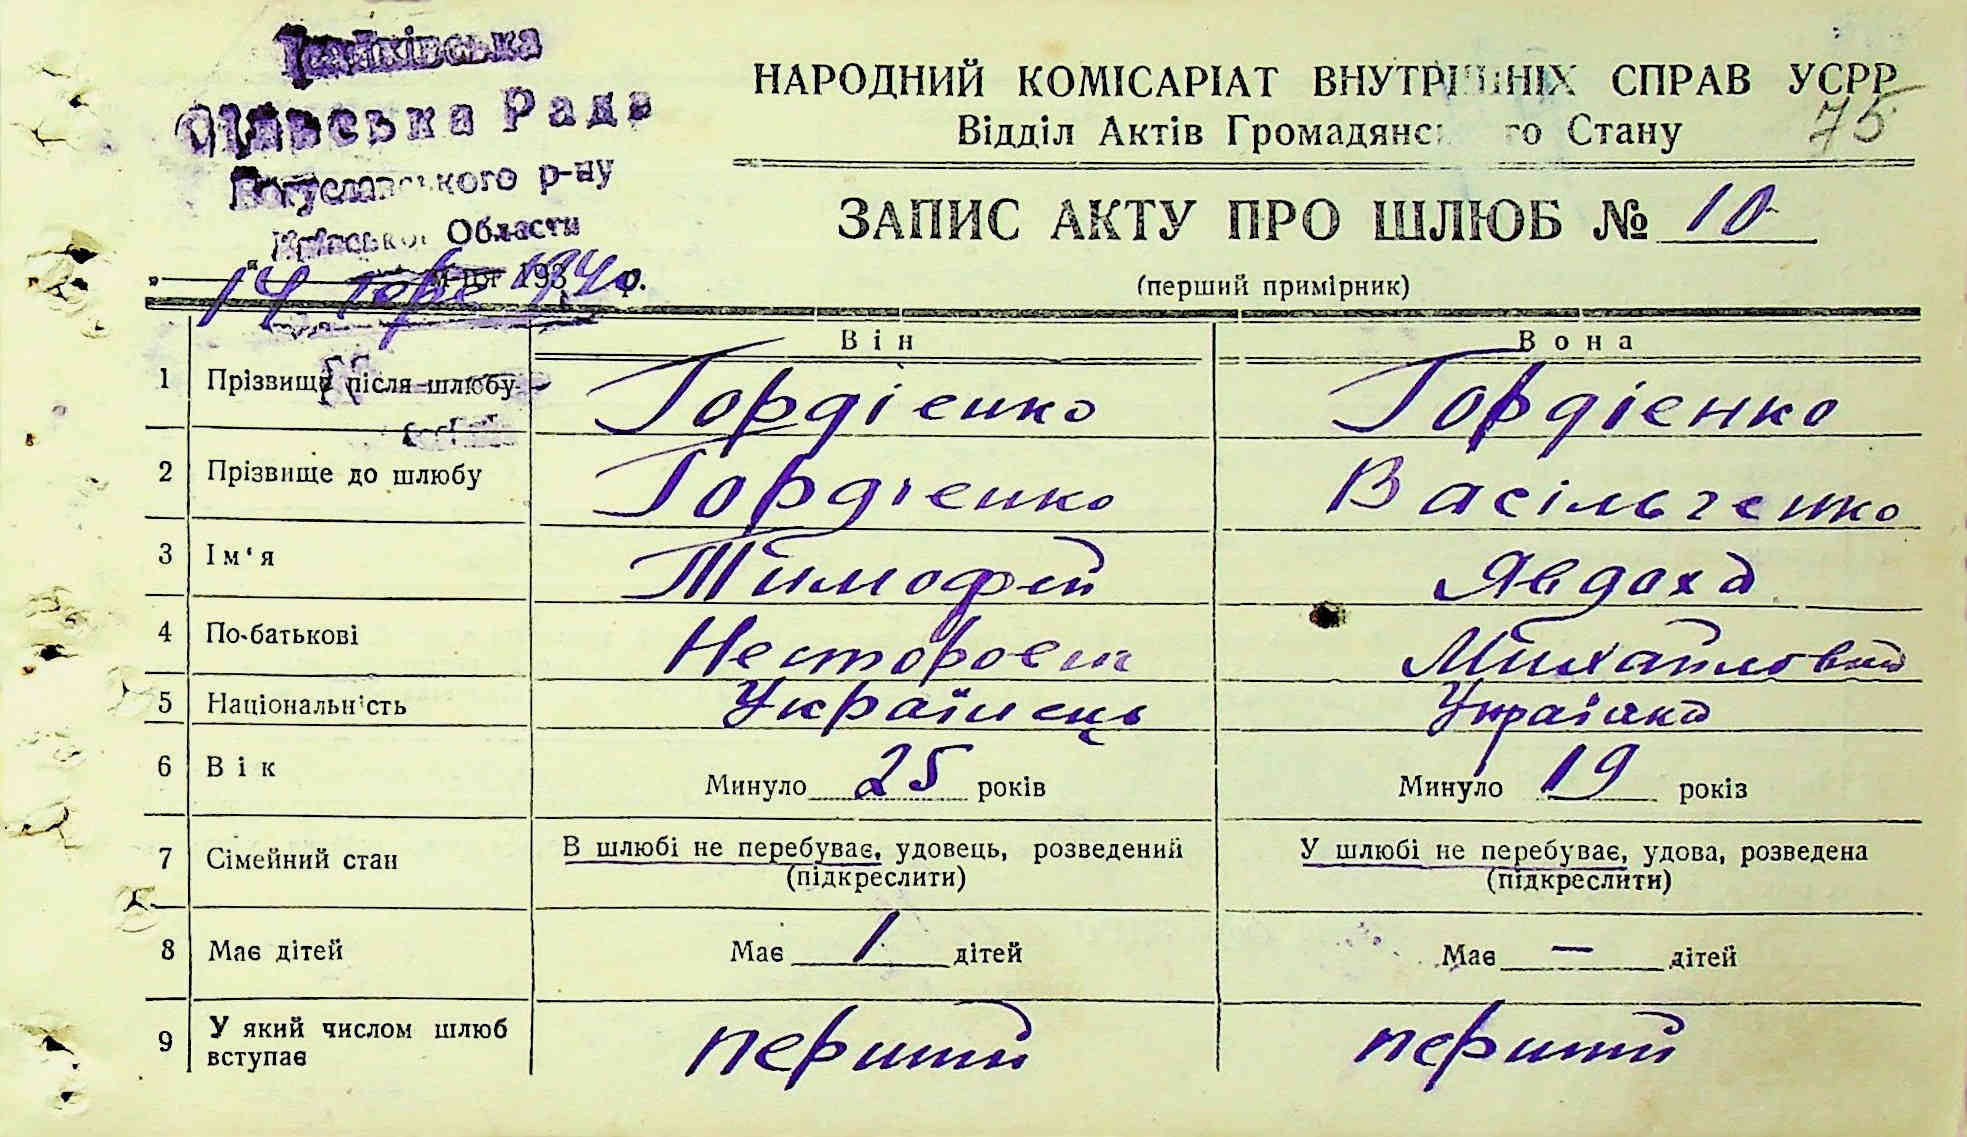 Сільська Рада
Богуславського р-ну
Київської Области
14 1940 р.
НАРОДНИЙ КОМІСАРІАТ ВНУТРІШНІХ СПРАВ УСРР
Відділ Актів Громадянського Стану
75
ЗАПИС АКТУ ПРО ШЛЮБ № 10
(перший примірник)
Він Вона
1 Прізвище після шлюбу Гордієнко Гордієнко
2 Прізвище до шлюбу Гордієнко Васільченко
3 Ім'я Тимофій Явдоха
4 По-батькові Несторовіч Михайловна
5 Національність Українець Українка
6 Вік Минуло 25 років Минуло 19 років
7 Сімейний стан В шлюбі не перебуває, удовець, розведений У шлюбі не перебуває, удова, розведена
(підкреслити) (підкреслити)
8 Має дітей Має 1 дітей Має — дітей
9 У який числом шлюб
вступає перший перший